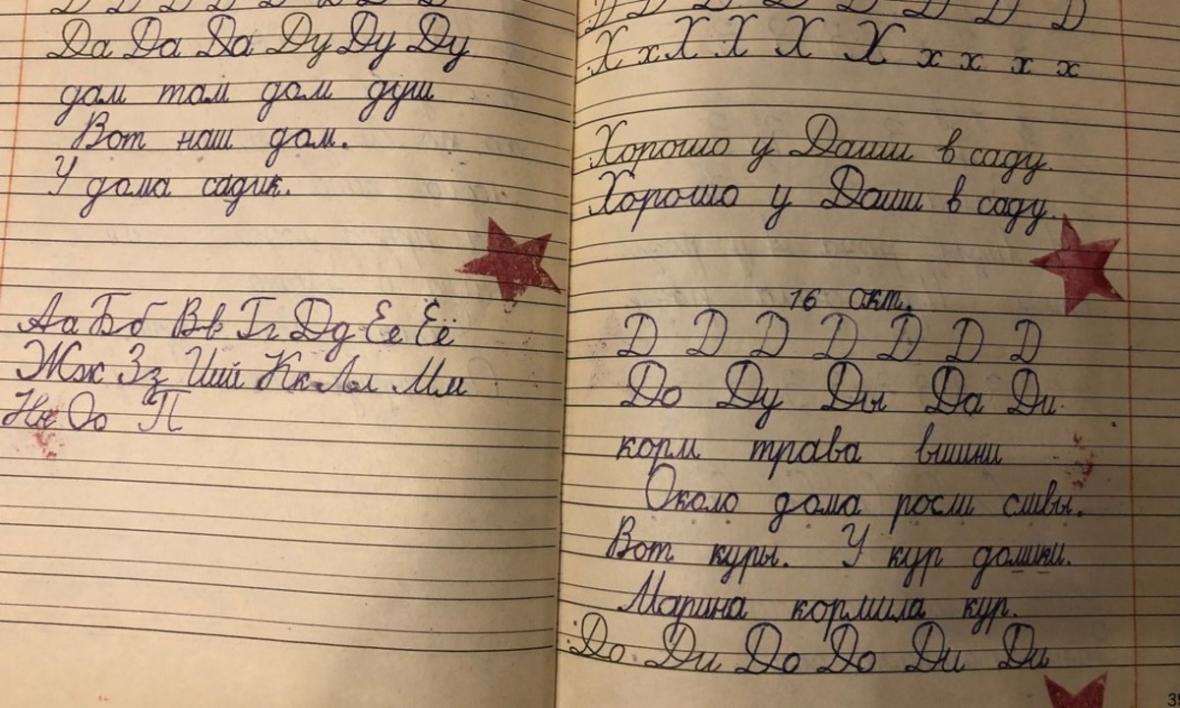 Д Д Д Д Д Д Д
Да Да Да Ду Ду Ду
дом там дом душ
Вот наш дом.
У дома садик.
Аа Бб Вв Гг Дд Ее Её
Жж Зз Ий Кк Лл Мм
Нн Оо П
Д Д Д Д Д Д Д Д
Х х Х Х Х Х х х х х
Хорошо у Даши в саду.
Хорошо у Даши в саду.
16 окт.
Д Д Д Д Д Д Д
До Ду Ды Да Ди
корм трава
Около дома росли сливы.
Вот куры. У кур домики.
Марина кормила кур.
До Ди До До Ди Ди
39